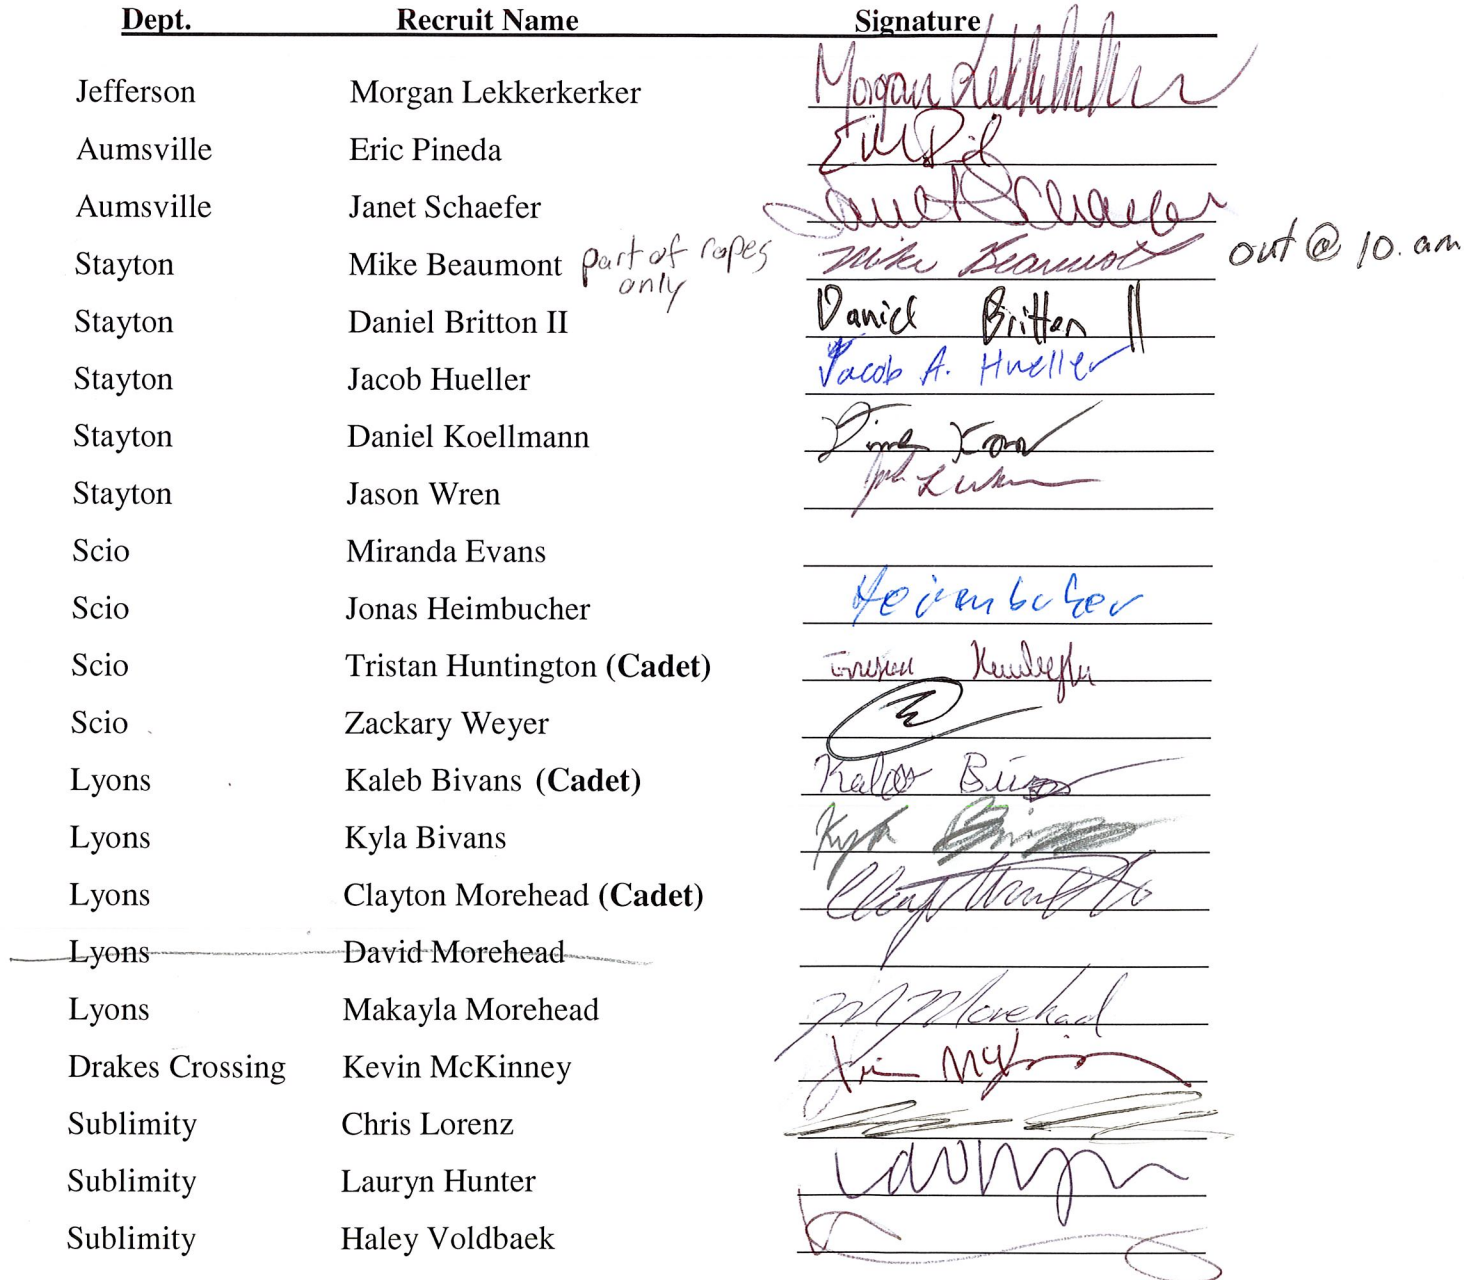 Dept. Recruit Name Signature
Jefferson Morgan Lekkerkerker Morgan
Aumsville Eric Pineda
Aumsville Janet Schaefer Janet Schaefer
Stayton Mike Beaumont part of ropes only Mike Beaumont out @ 10. am
Stayton Daniel Britton II Daniel Britton II
Stayton Jacob Hueller Jacob A. Hueller
Stayton Daniel Koellmann
Stayton Jason Wren
Scio Miranda Evans
Scio Jonas Heimbucher Heimbucher
Scio Tristan Huntington (Cadet)
Scio Zackary Weyer
Lyons Kaleb Bivans (Cadet) Kaleb
Lyons Kyla Bivans Kyla
Lyons Clayton Morehead (Cadet)
Lyons David Morehead
Lyons Makayla Morehead M Morehead
Drakes Crossing Kevin McKinney
Sublimity Chris Lorenz
Sublimity Lauryn Hunter Lauryn
Sublimity Haley Voldbaek